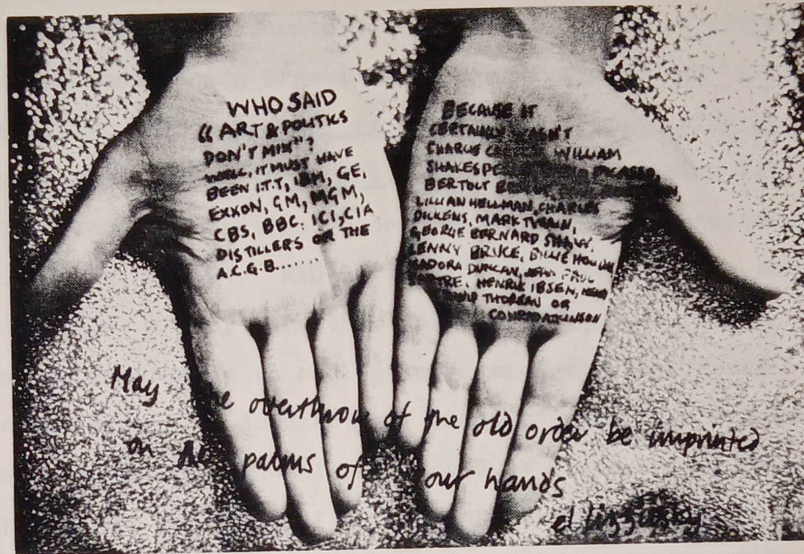 WHO SAID
"ART & POLITICS
DON'T MIX"?
WELL, IT MUST HAVE
BEEN I.T.T, IBM, GE,
EXXON, GM, MGM,
CBS, BBC, ICI, CIA
DISTILLERS OR THE
A.C.G.B.......
BECAUSE IT
CERTAINLY WASN'T
CHARLIE WILLIAM
PICASSO,
BERTOLT
LILLIAN HELLMAN, CHARLES
DICKENS, MARK TWAIN,
GEORGE BERNARD SHAW,
LENNY BRUCE, BILLIE
DUNCAN, JEAN PAUL
HENRIK IBSEN,
THOREAU OR
CONRAD ATKINSON
May overthrow of the old order be imprinted
on palms of your hands
el lissitzky